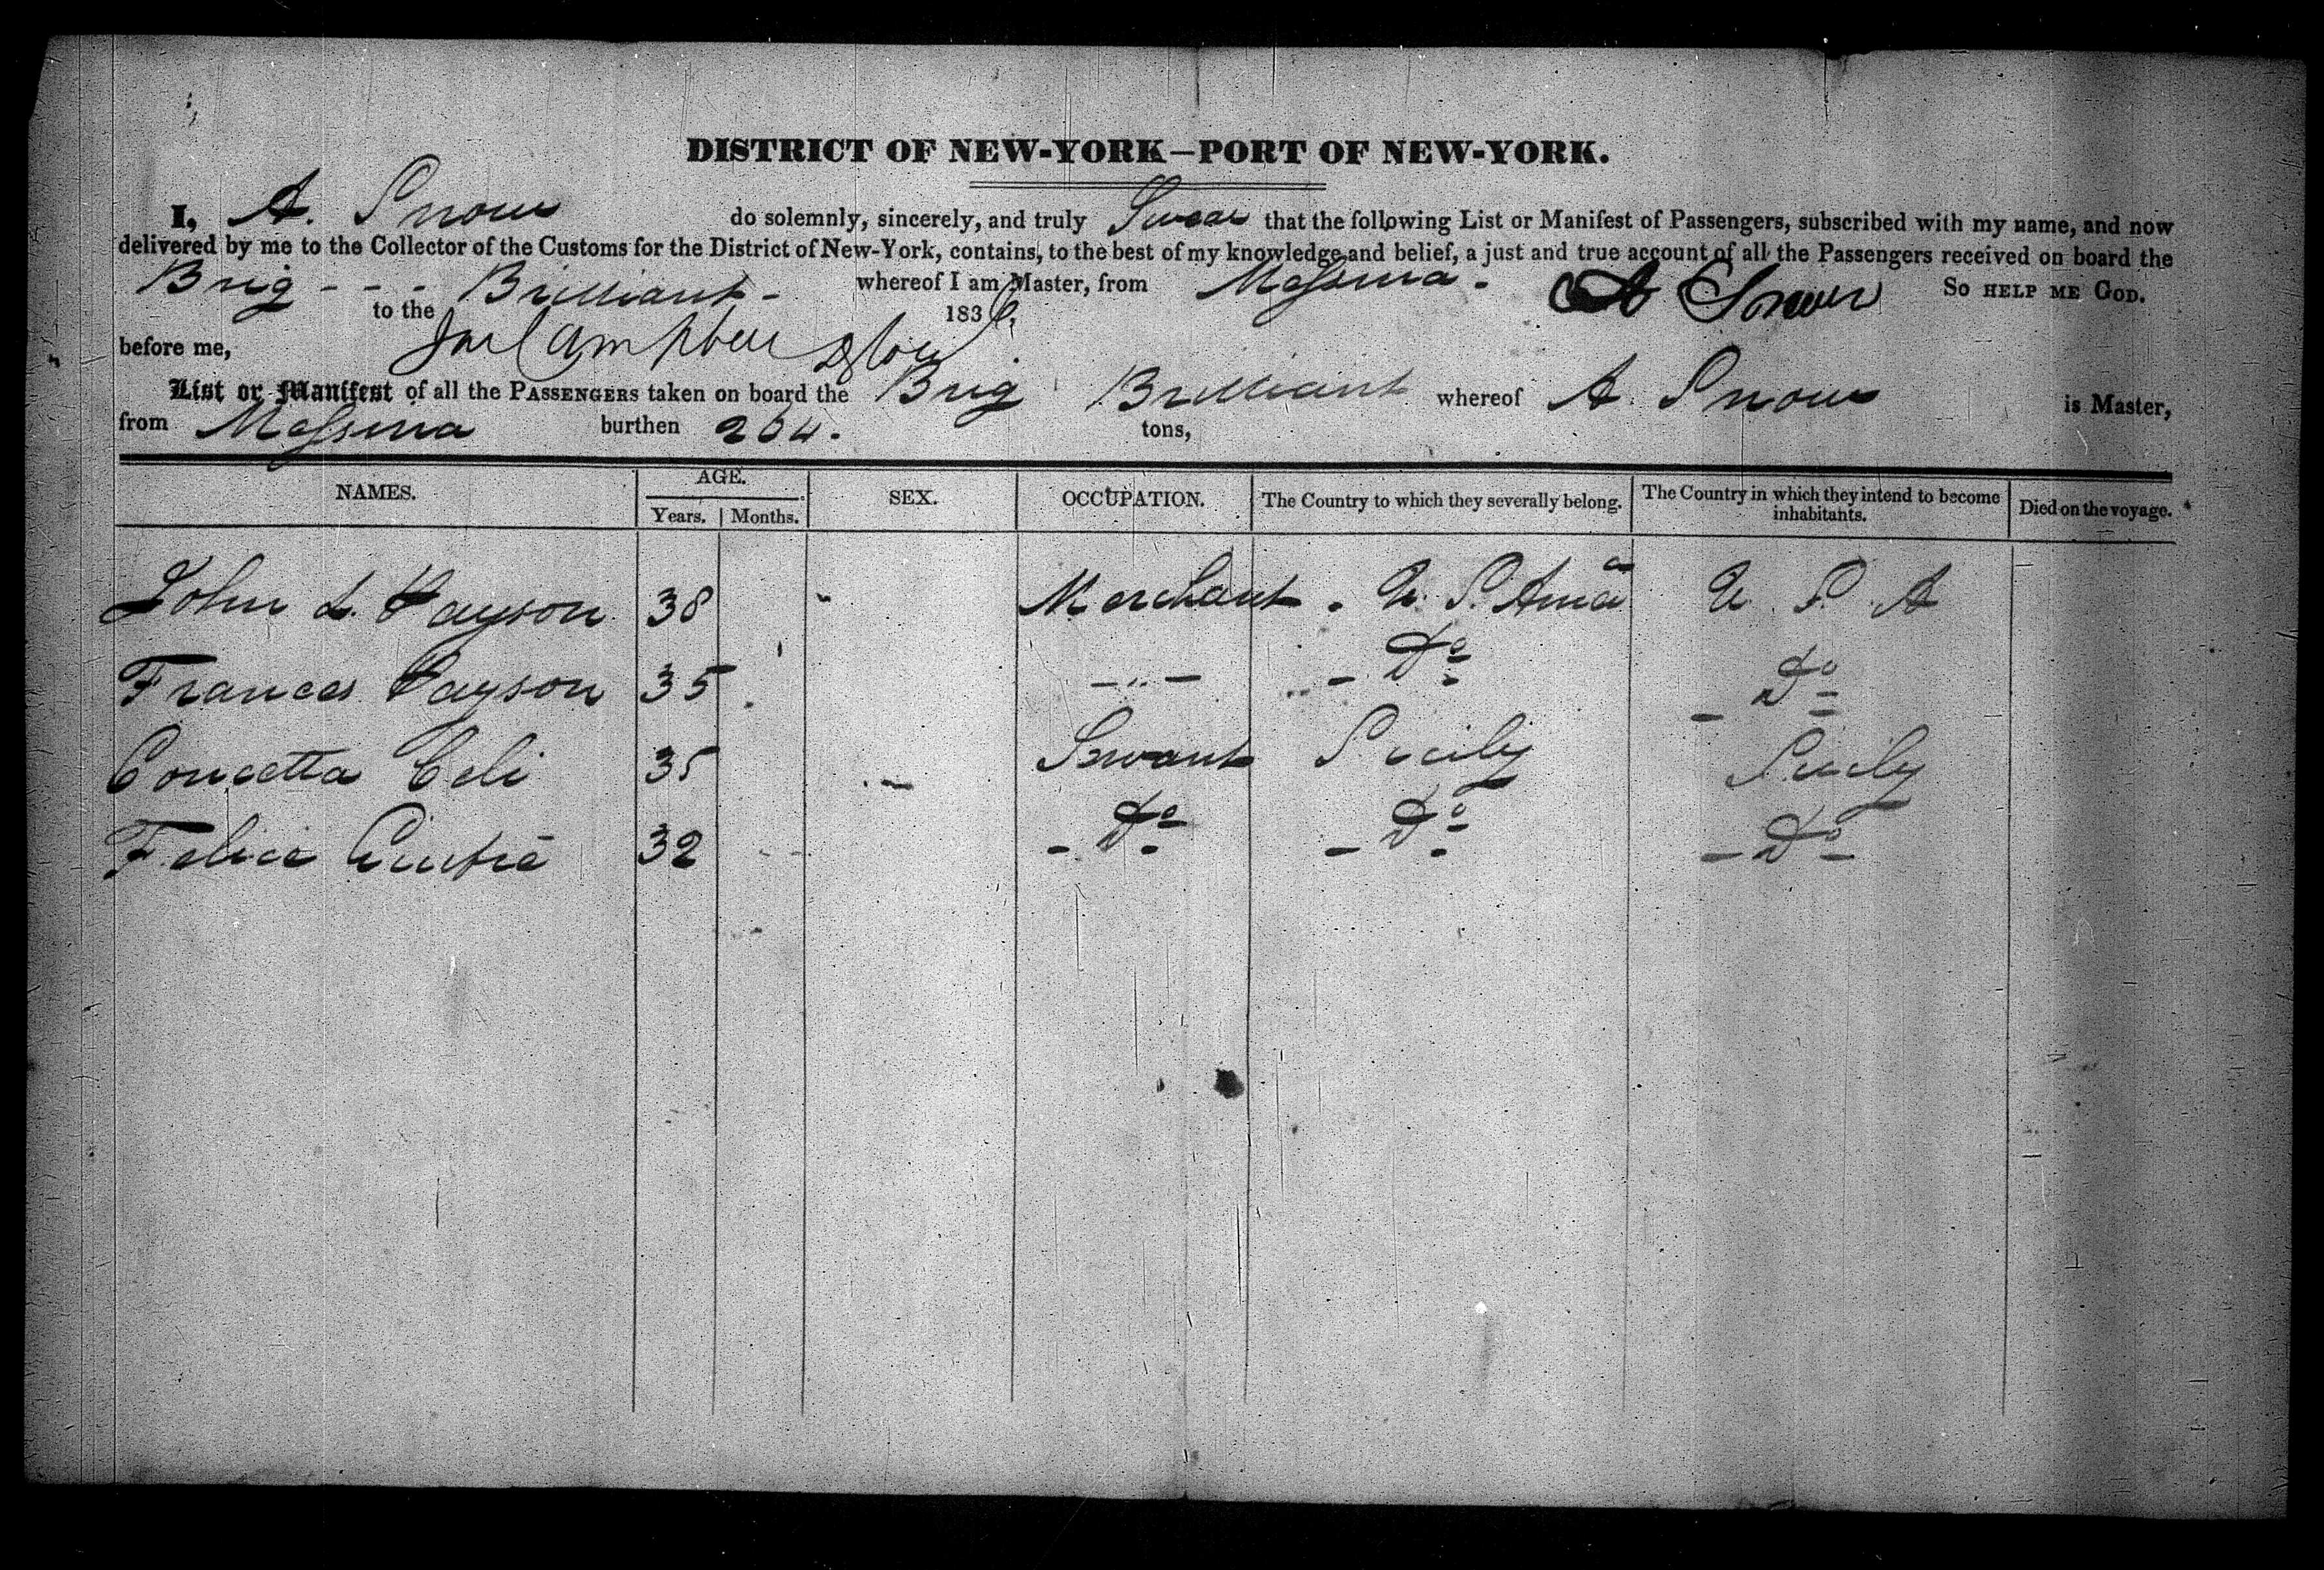 DISTRICT OF NEW-YORK—PORT OF NEW-YORK.
I, A. Snow do solemnly, sincerely, and truly Swear that the following List or Manifest of Passengers, subscribed with my name, and now
delivered by me to the Collector of the Customs for the District of New-York, contains, to the best of my knowledge and belief, a just and true account of all the Passengers received on board the
Brig - - - Brilliant - whereof I am Master, from Messina. A Snow So HELP ME GOD.
to the 1836.
before me, Campbell
List or Manifest of all the PASSENGERS taken on board the Brig Brilliant whereof A. Snow is Master,
from Messina burthen 264. tons,
NAMES. AGE. Years. Months. SEX. OCCUPATION. The Country to which they severally belong. The Country in which they intend to become inhabitants. Died on the voyage.
John L. Payson 38 Merchant. U. S. Amca U S A
Frances Payson 35 - " - - Do - Do
Concetta Celi 35 Servant Sicily Sicily
Felice 32 - Do - Do - Do